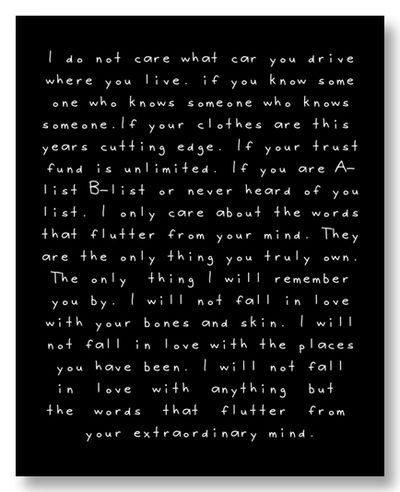 I do not care what car you drive
where you live. if you know some
one who knows someone who knows
someone.If your clothes are this
years cutting edge. If your trust
fund is unlimited. If you are A-
list B-list or never heard of you
list. I only care about the words
that flutter from your mind. They
are the only thing you truly own.
The only thing I will remember
you by. I will not fall in love
with your bones and skin. I will
not fall in love with the places
you have been. I will not fall
in love with anything but
the words that flutter from
your extraordinary mind.